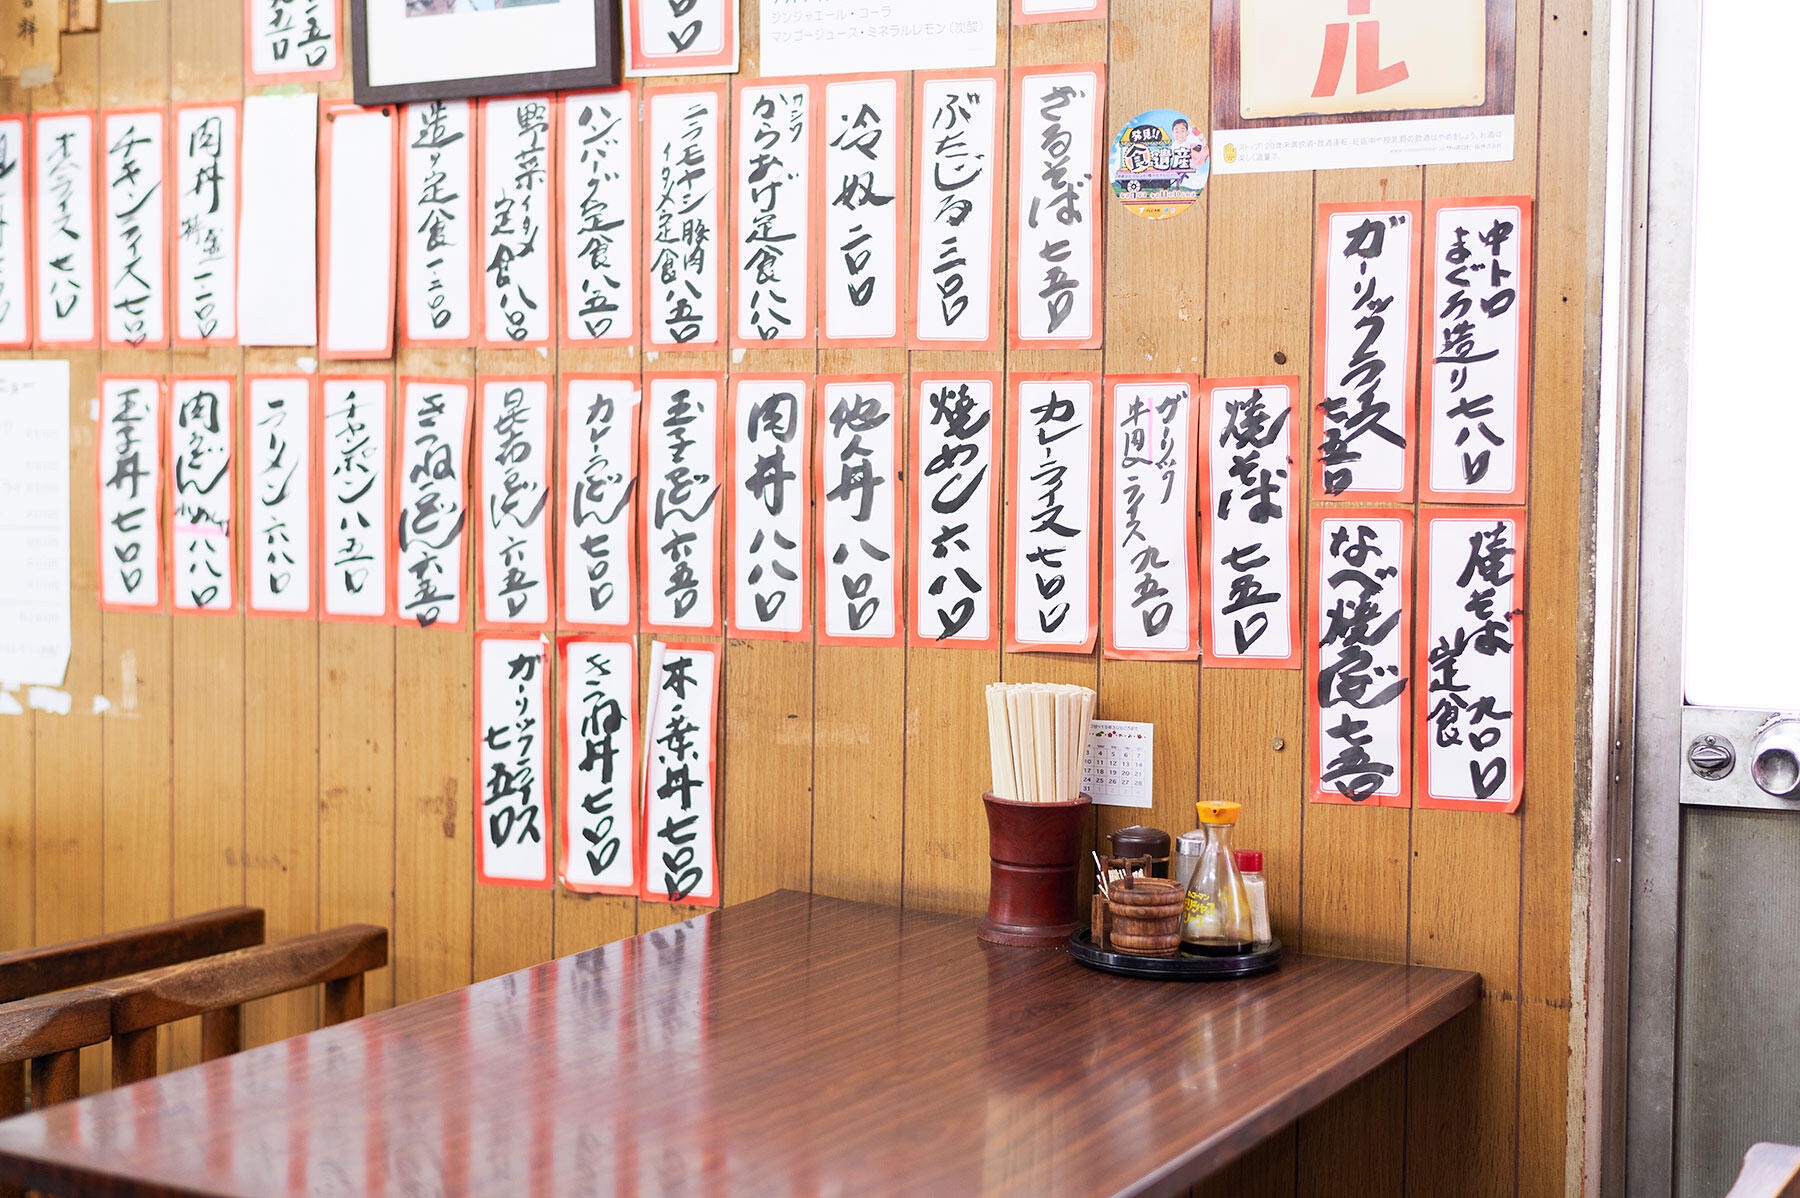 ジンジャエール・コーラ
マンゴージュース・ミネラルレモン(炭酸)
ール
ストップ!20歳未満飲酒・飲酒運転。妊娠中や授乳期の飲酒はやめましょう。お酒は
楽しく適量で。
発見!!
食遺産
ざるそば 七五〇
ぶたじる 三〇〇
冷奴 二〇〇
カシワ
からあげ定食 八八〇
ニラモヤシ豚肉
イタメ定食 八五〇
ハンバーグ定食 八五〇
野菜イタメ
定食 八〇〇
造り定食 一二〇〇
肉丼
チキンライス 七〇〇
オムライス 七八〇
中トロ
まぐろ造り 七八〇
ガーリックライス
七五〇
焼そば 七五〇
ガーリック
牛肉入ライス 九五〇
カレーライス 七〇〇
焼めし 六八〇
他人丼 八〇〇
肉丼 八八〇
玉子うどん 六五〇
カレーうどん 七〇〇
昆布うどん 六五〇
きつねうどん 六五〇
チャンポン 八五〇
ラーメン 六八〇
肉うどん 八八〇
玉子丼 七〇〇
焼そば
定食 九〇〇
なべ焼うどん 七五〇
木ノ葉丼 七〇〇
きつね丼 七〇〇
ガーリックライス
七五〇